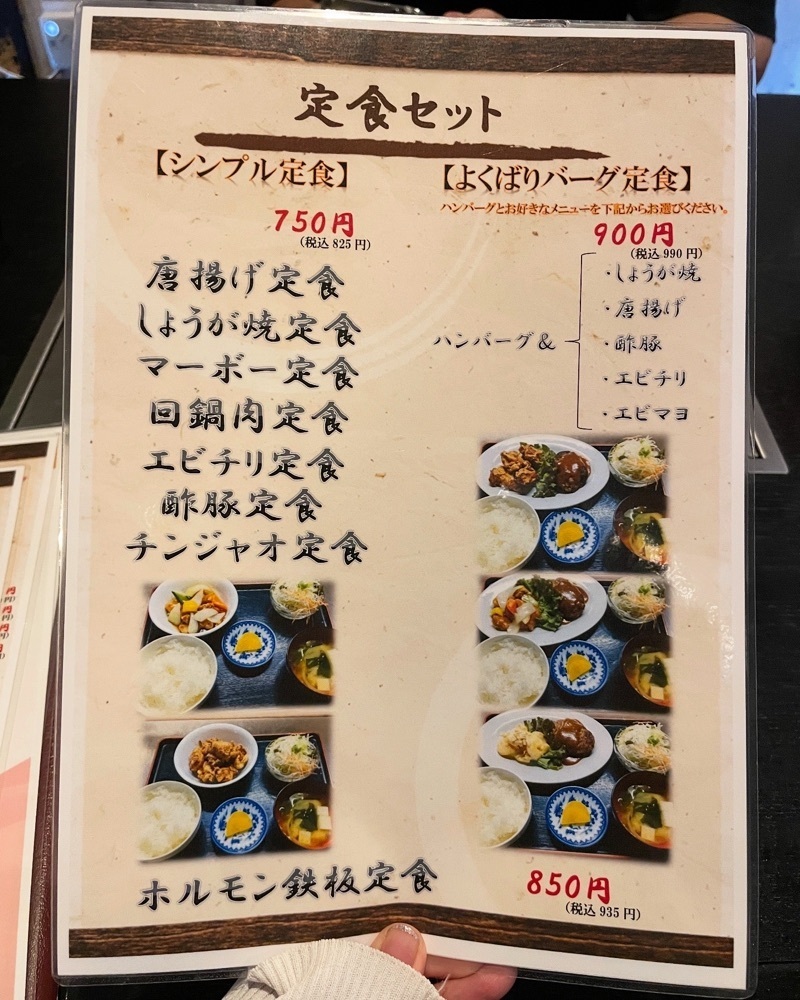 定食セット
【シンプル定食】
750円
(税込 825円)
唐揚げ定食
しょうが焼定食
マーボー定食
回鍋肉定食
エビチリ定食
酢豚定食
チンジャオ定食
【よくばりバーグ定食】
ハンバーグとお好きなメニューを下記からお選びください。
900円
(税込 990円)
ハンバーグ&
・しょうが焼
・唐揚げ
・酢豚
・エビチリ
・エビマヨ
ホルモン鉄板定食
850円
(税込 935円)